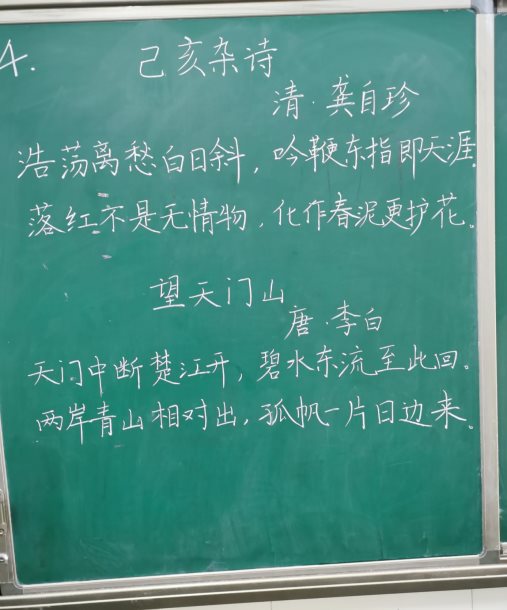 4. 己亥杂诗
清·龚自珍
浩荡离愁白日斜，吟鞭东指即天涯。
落红不是无情物，化作春泥更护花。
望天门山
唐·李白
天门中断楚江开，碧水东流至此回。
两岸青山相对出，孤帆一片日边来。